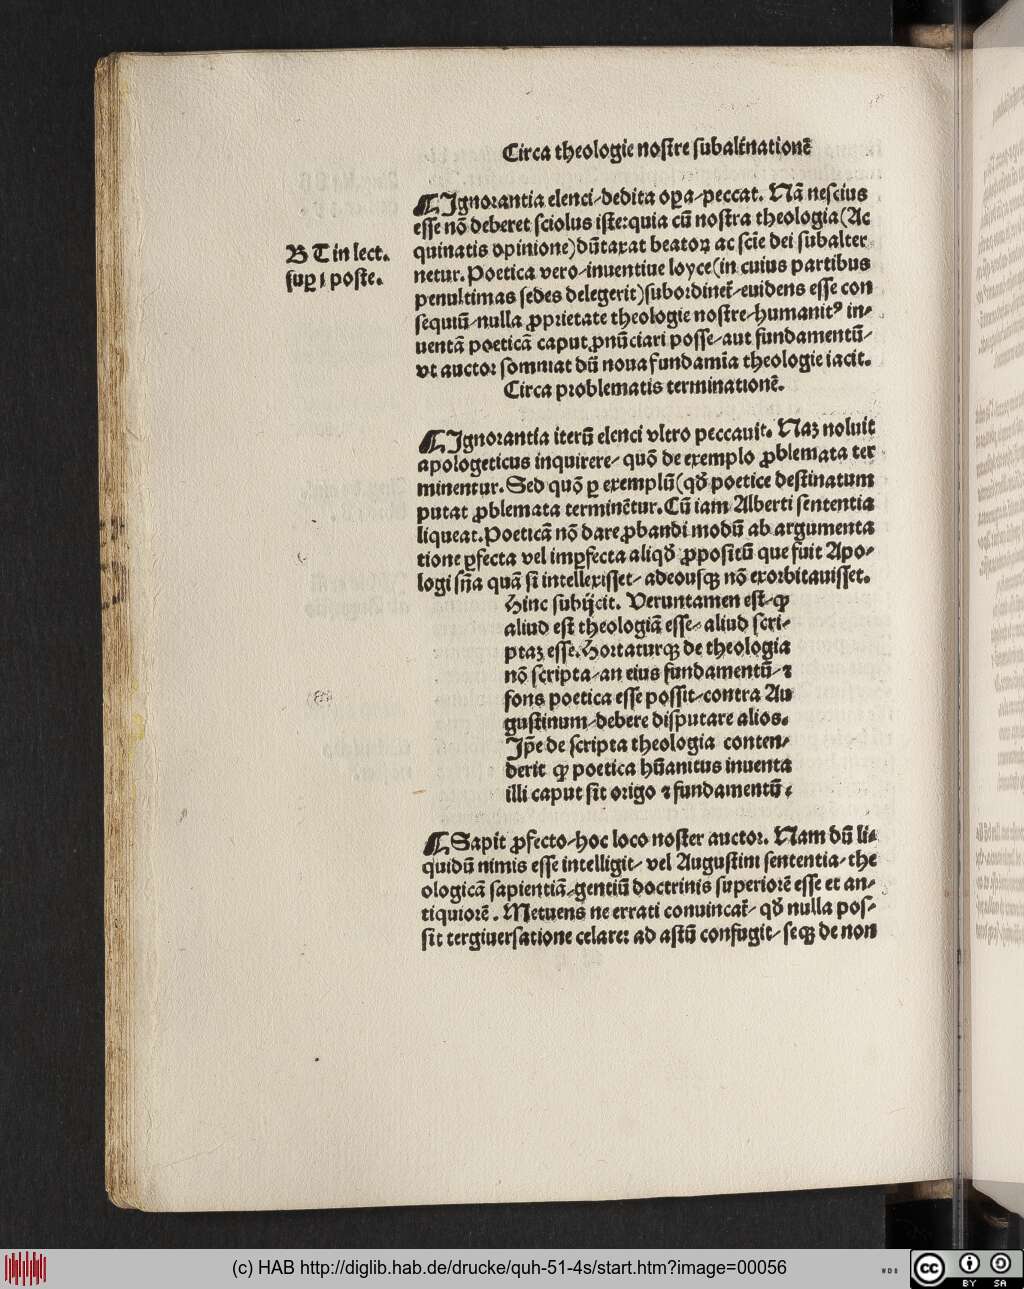 Circa theologie noſtre ſubalt̃nationẽ
⸿Ignorantia elenci/dedita oꝑa/peccat. Nã neſcius
eſſe nõ deberet ſciolus iſte:quia cũ noſtra theologia(Ac
quinatis opinione)dũtaxat beatoꝝ ac ſcīe dei ſubalter
netur. Poetica vero/inuentiue loyce(in cuius partibus
penultimas ſedes delegerit)ſubordinet̃/euidens eſſe con
ſequiũ/nulla ꝓprietate theologie noſtre/humanitꝰ in/
uentã poeticã caput ꝓnũciari poſſe/aut fundamentũ/
vt auctor ſomniat dũ noua fundamīa theologie iacit.
B T in lect.
ſuꝑ ı poſte.
Circa problematis terminationẽ.
⸿Ignorantia iterũ elenci vltro peccauit. Naꝫ noluit
apologeticus inquirere/ quõ de exemplo ꝓblemata ter
minentur. Sed quõ ꝑ exemplũ(qđ poetice deſtinatum
putat ꝓblemata terminẽtur. Cũ iam Alberti ſententia
liqueat. Poeticã nõ dare ꝓbandi modũ ab argumenta
tione ꝑfecta vel imꝑfecta aliqđ ꝓpoſitũ que fuit Apo/
logi ſñia quã ſi intellexiſſet/ adeouſqꝫ nõ exorbitauiſſet.
Hinc ſubijcit. Veruntamen eſt/ꝙ
aliud eſt theologiã eſſe/aliud ſcri/
ptaꝫ eſſe. Hortaturqꝫ de theologia
nõ ſcripta/an eius fundamentũ/⁊
fons poetica eſſe poſſit/contra Au
guſtinum/debere diſputare alios.
Ip̃e de ſcripta theologia conten/
derit ꝙ poetica hũanitus inuenta
illi caput ſit origo ⁊ fundamentũ.
⸿Sapit ꝓfecto/hoc loco noſter auctor. Nam dũ li/
quidũ nimis eſſe intelligit/ vel Auguſtini ſententia/ the
ologicã ſapientiã/gentiũ doctrinis ſuperiorẽ eſſe et an/
tiquiorẽ. Metuens ne errati conuincat̃/ qđ nulla poſ/
ſit tergiuerſatione celare: ad aſtũ confugit/ ſeqꝫ de non
(c) HAB http://diglib.hab.de/drucke/quh-51-4s/start.htm?image=00056
WDB
cc BY SA